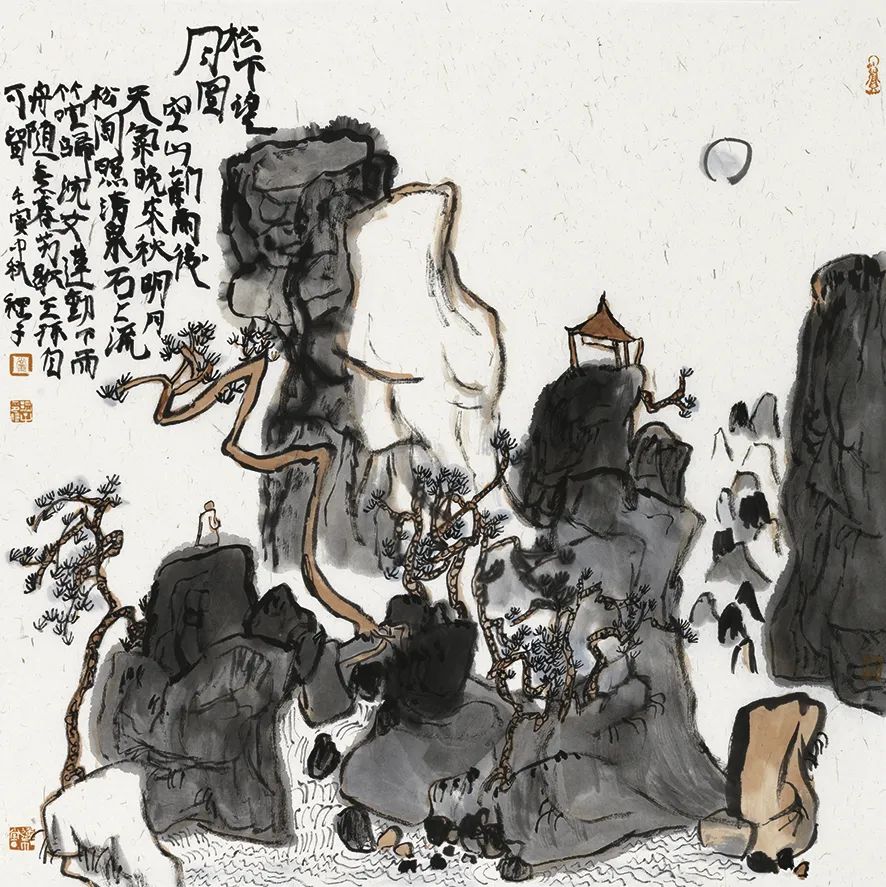 松下望
月图
空山新雨後
天氣晚來秋明月
松间照清泉石上流
竹喧歸浣女蓮動下雨
舟随意春芳歇王孫自
可留 壬寅中秋